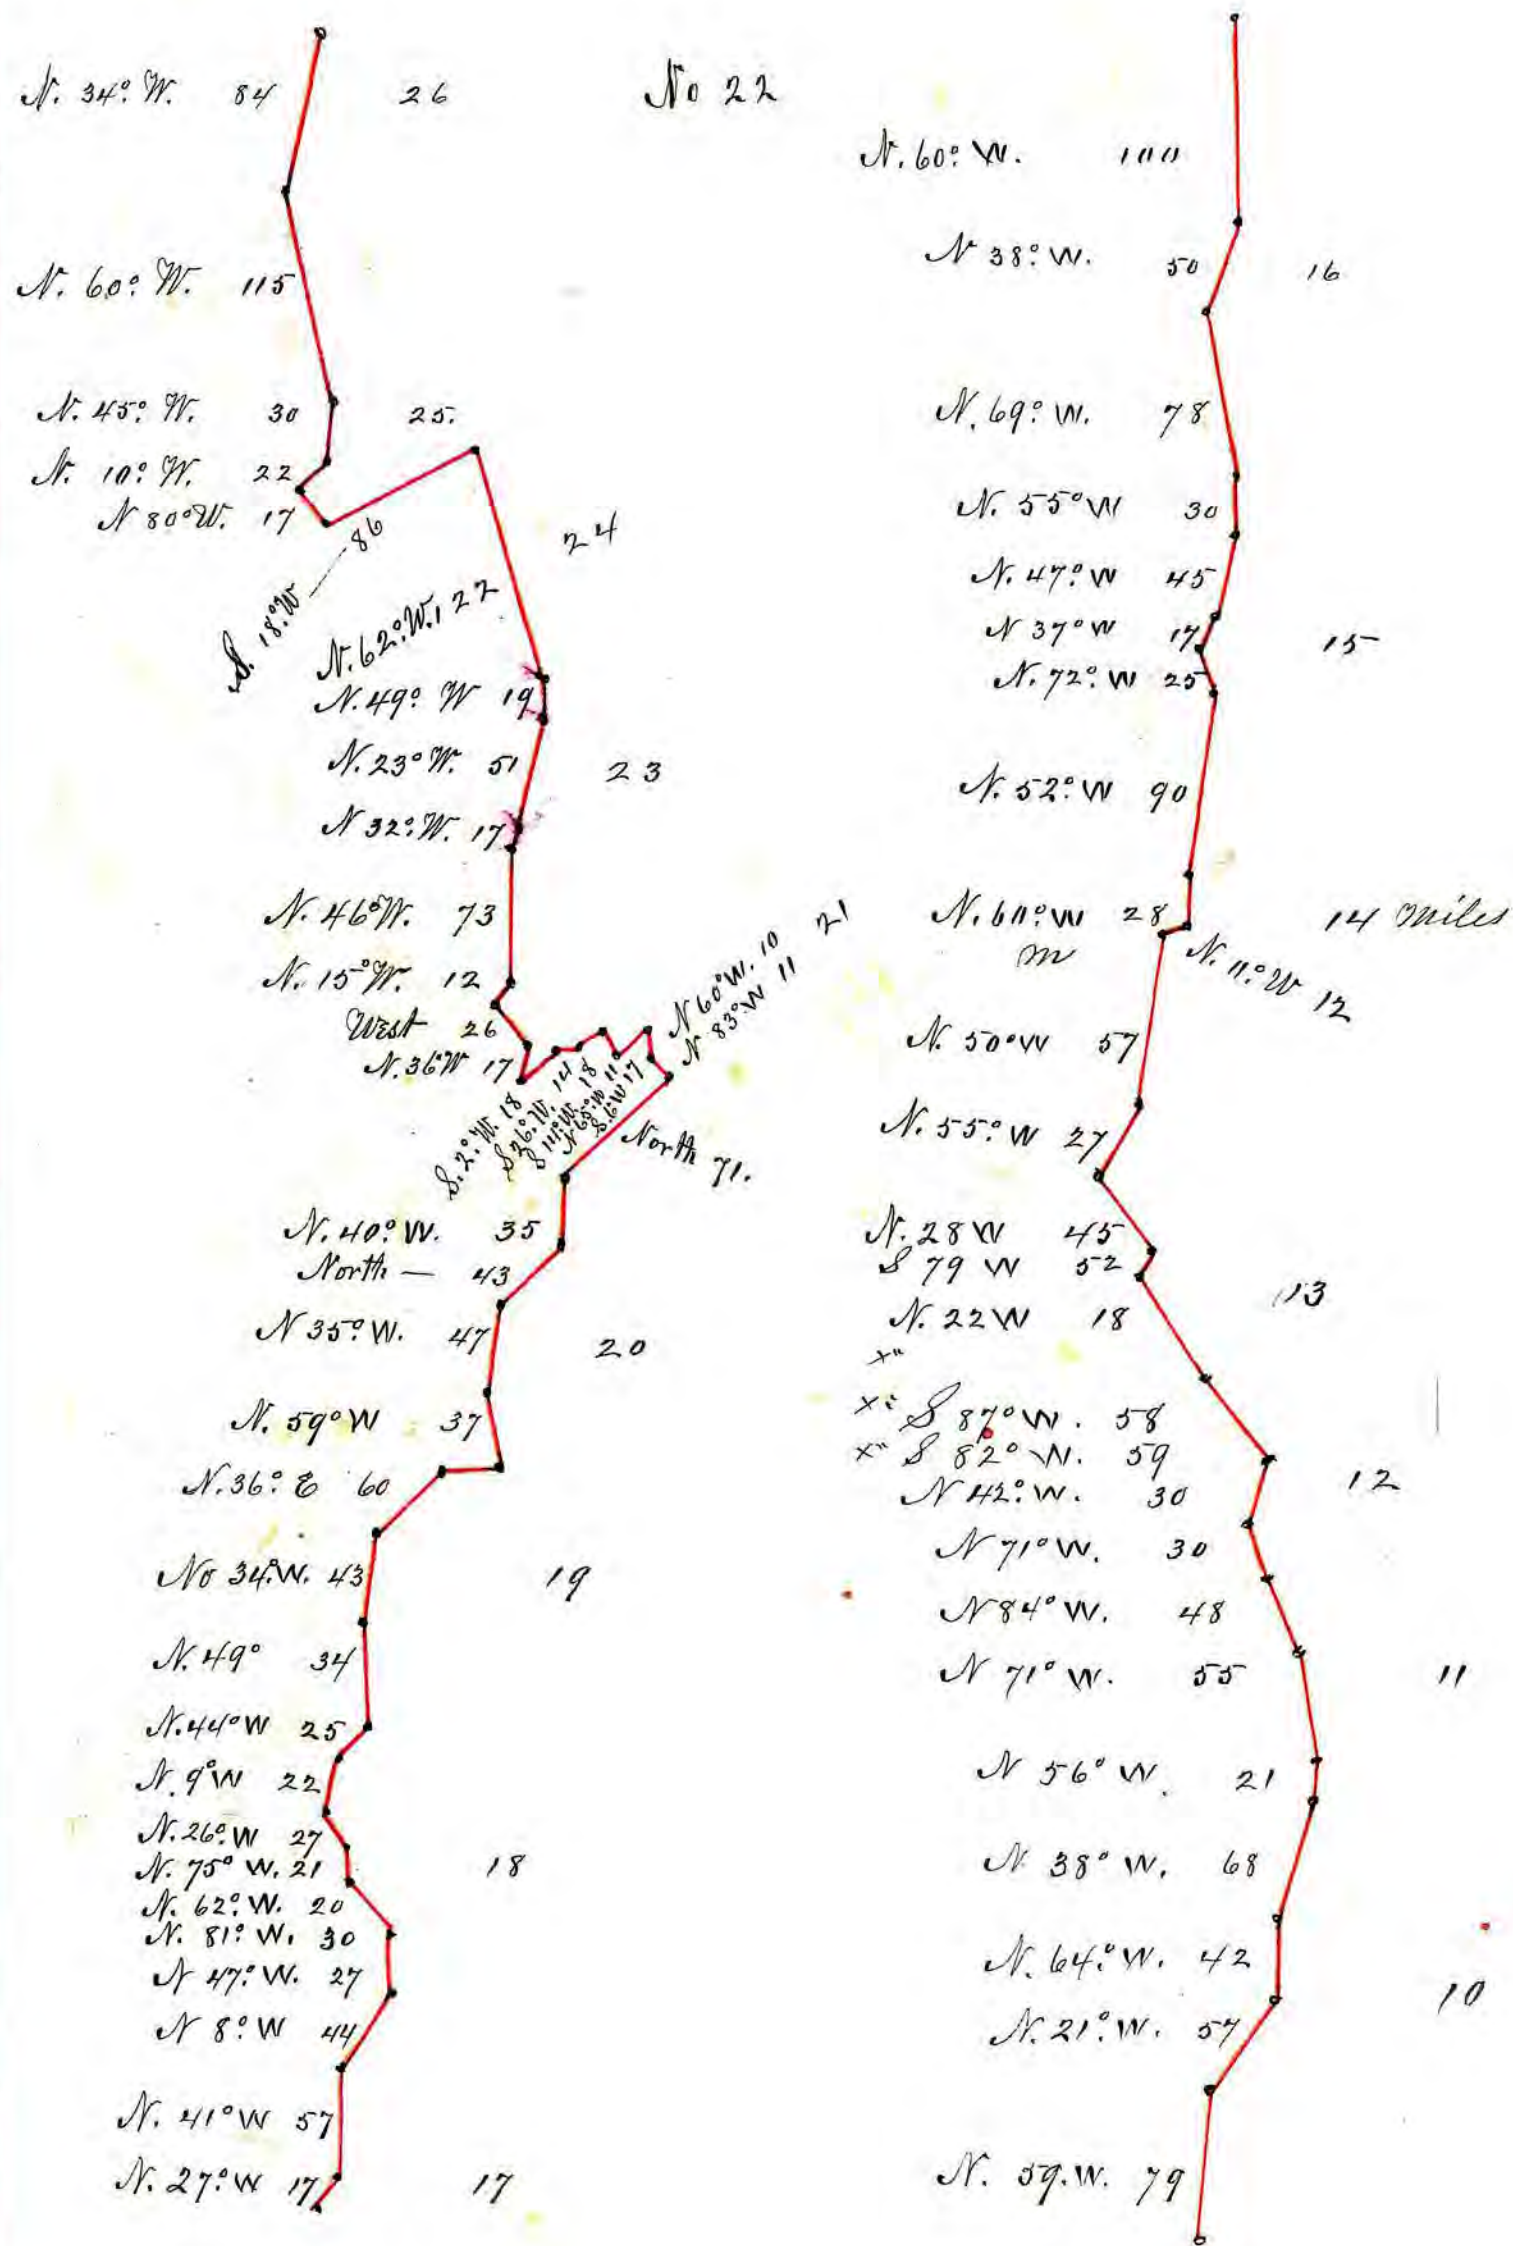 No 22
N. 34° W. 84 26
N. 60° W. 115
N. 45° W. 30 25.
N. 10° W. 22
N 80° W. 17
S. 18° W — 86
24
N. 62° W. 122
N. 49° W 19
N. 23° W. 51 23
N 32° W. 17
N. 46° W. 73
N. 15° W. 12
West 26
N. 36 W 17
S. 2° W. 18
S 26° W. 14
S 14° W. 18
N 65° W 11
S. 6 W 17
N 60° W. 10
N 83° W 11
21
North 71.
N. 40° W. 35
North — 43
N 35° W. 47 20
N. 59° W 37
N. 36° E 60
No 34° W. 43 19
N. 49° 34
N. 44° W 25
N. 9° W 22
N. 26° W 27
N. 75° W. 21 18
N. 62° W. 20
N. 81° W. 30
N 47° W. 27
N 8° W 44
N. 41° W 57
N. 27° W 17 17
N. 60° W. 100
N 38° W. 50 16
N. 69° W. 78
N. 55° W 30
N. 47° W 45
N 37° W 17 15
N. 72° W 25
N. 52° W 90
N. 60° W 28 14 Miles
m
N. 11° W 12
N. 50° W 57
N. 55° W 27
N. 28 W 45
S 79 W 52
N. 22 W 18 13
x"
x" S 87° W. 58
x" S 82° W. 59
N 42° W. 30 12
N 71° W. 30
N 84° W. 48
N 71° W. 55 11
N 56° W. 21
N 38° W. 68
N. 64° W. 42
N. 21° W. 57 10
N. 59. W. 79